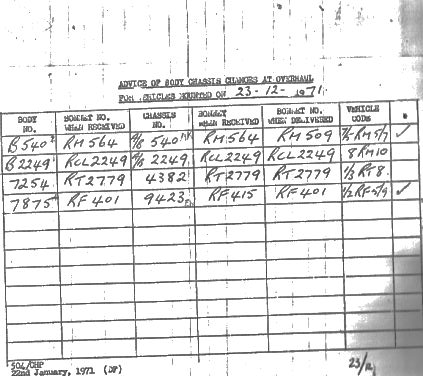 ADVICE OF BODY CHASSIS CHANGES AT OVERHAUL
FOR VEHICLES MOUNTED ON 23-12-1971
BODY NO. BONNET NO. WHEN RECEIVED CHASSIS NO. BONNET WHEN RECEIVED BONNET NO. WHEN DELIVERED VEHICLE CODE
B540 RM564 540 RM564 RM509 RM5/7 ✓
B2249 RCL2249 2249 RCL2249 RCL2249 8RM10
7254 RT2779 4382 RT2779 RT2779 1/3 RT8
7875 RF401 9423 RF415 RF401 1/2 RF5/9 ✓
504/CHP
22nd January, 1971 (DP)
23/12